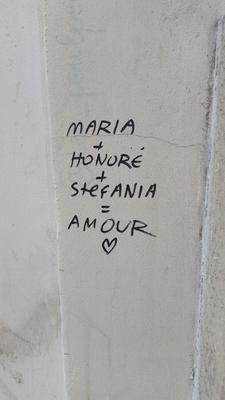 MARIA
+
HONORÉ
+
STEFANIA
=
AMOUR
♡